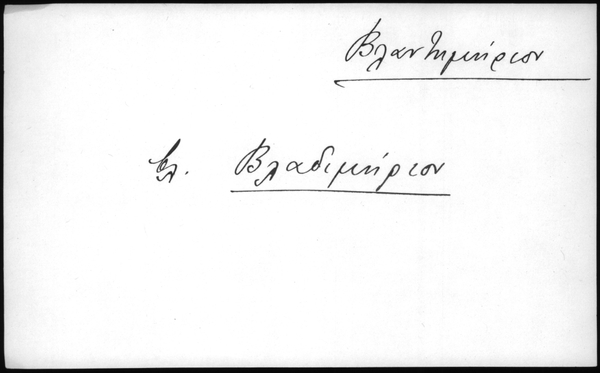 Βλαντημήριον
βλ. Βλαδιμήριον